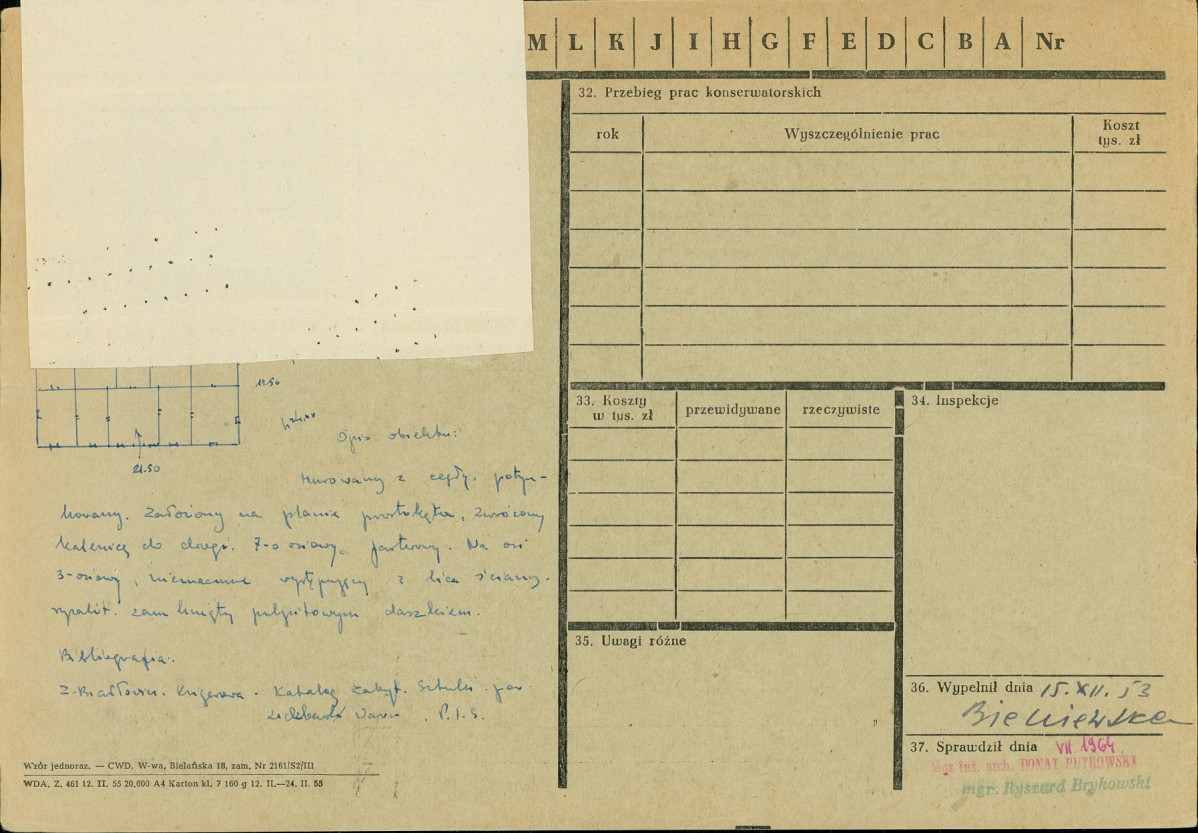 M L K J I H G F E D C B A Nr
32. Przebieg prac konserwatorskich
rok Wyszczególnienie prac Koszt tys. zł
11.50
21.50
Opis obiektu:
Murowany z cegły, potyn-
kowany. Założony na planie prostokąta, zwrócony
kalenicą do drogi. 7-o osiowy, parterowy. Na osi
3-osiowy, nieznacznie występujący z lica ściany
ryzalit zamknięty pulpitowym daszkiem.
Bibliografia.
Katalog Zabyt. Sztuki. pow.
P.I.S.
33. Koszty w tys. zł przewidywane rzeczywiste
34. Inspekcje
35. Uwagi różne
36. Wypełnił dnia 15.XII.53
37. Sprawdził dnia VII 1964
Mgr inż. arch. DONAT PUTKOWSKI
mgr. Ryszard Brykowski
Wzór jednoraz. — CWD, W-wa, Bielańska 18, zam. Nr 2161/S2/III
WDA. Z. 461 12. II. 55 20,000 A4 Karton kl. 7 160 g 12. II.—24. II. 55